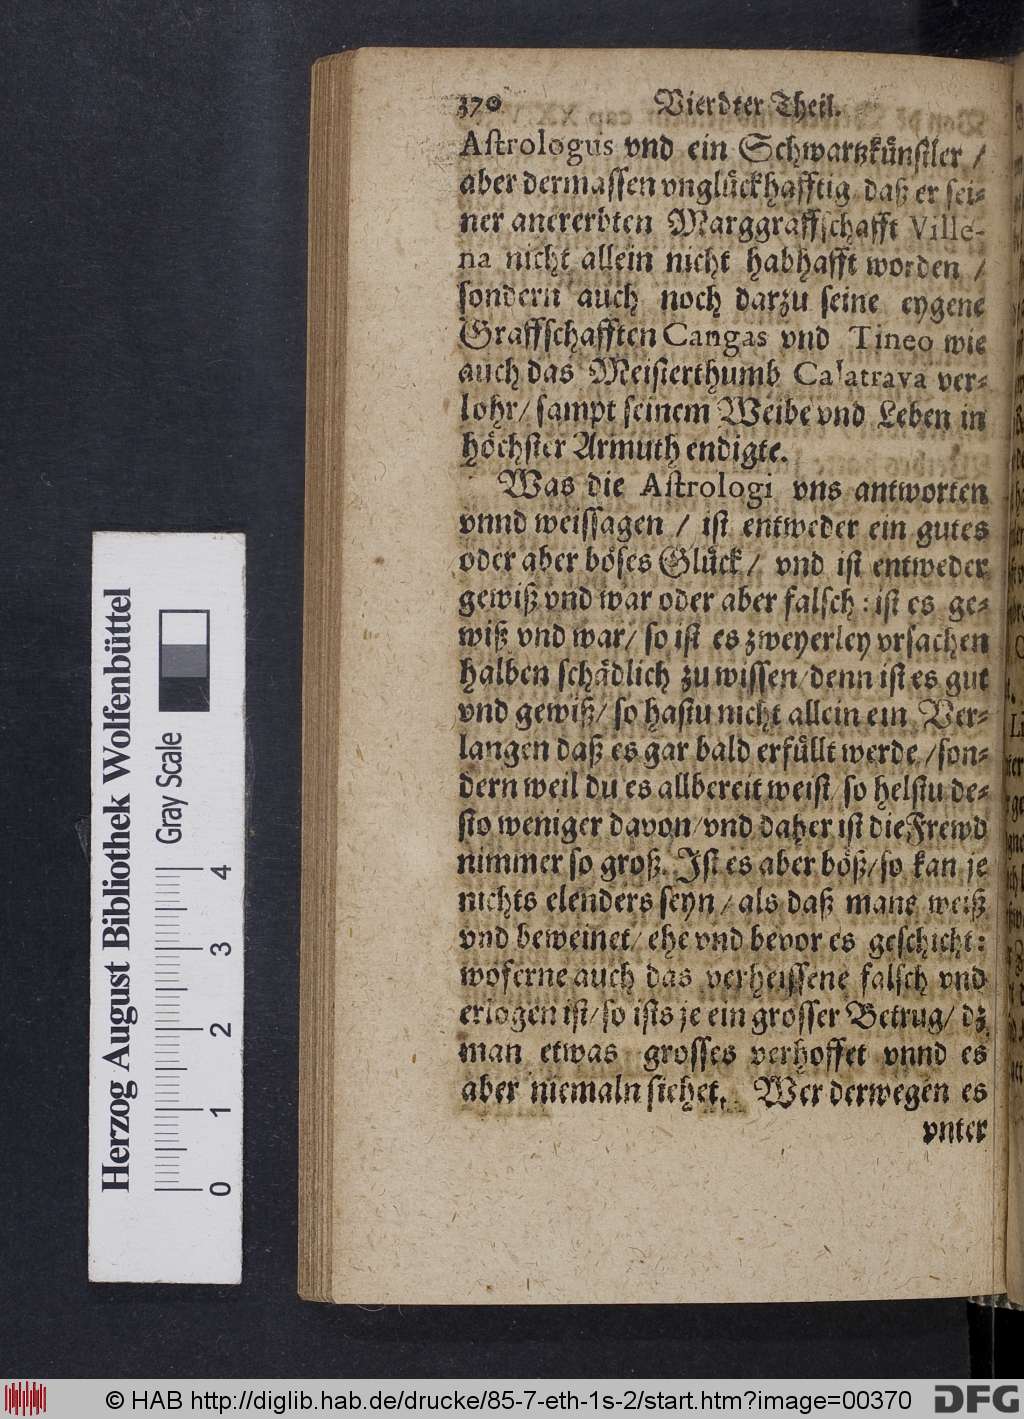 370 Vierdter Theil.
Astrologus vnd ein Schwartzkünstler /
aber dermassen vnglückhafftig daß er sei-
ner anererbten Marggraffschafft Ville-
na nicht allein nicht habhafft worden /
sondern auch noch darzu seine eygene
Graffschafften Cangas vnd Tineo wie
auch das Meisterthumb Calatrava ver-
lohr/ sampt seinem Weibe vnd Leben in
höchster Armuth endigte.
Was die Astrologi vns antworten
vnnd weissagen / ist entweder ein gutes
oder aber böses Glück / vnd ist entweder
gewiß vnd war oder aber falsch : ist es ge-
wiß vnd war/ so ist es zweyerley vrsachen
halben schädlich zu wissen/denn ist es gut
vnd gewiß/ so hastu nicht allein ein Ver-
langen daß es gar bald erfüllt werde /son-
dern weil du es allbereit weist so helstu de-
sto weniger davon/vnd daher ist die Frewd
nimmer so groß. Ist es aber böß/so kan je
nichts elenders seyn / als daß mans weiß
vnd beweinet/ ehe vnd bevor es geschicht:
woferne auch das verheissene falsch vnd
erlogen ist/so ists je ein grosser Betrug/ dz
man etwas grosses verhoffet vnnd es
aber niemaln siehet. Wer derwegen es
vnter
Herzog August Bibliothek Wolfenbüttel
Gray Scale
0 1 2 3 4
© HAB http://diglib.hab.de/drucke/85-7-eth-1s-2/start.htm?image=00370 DFG